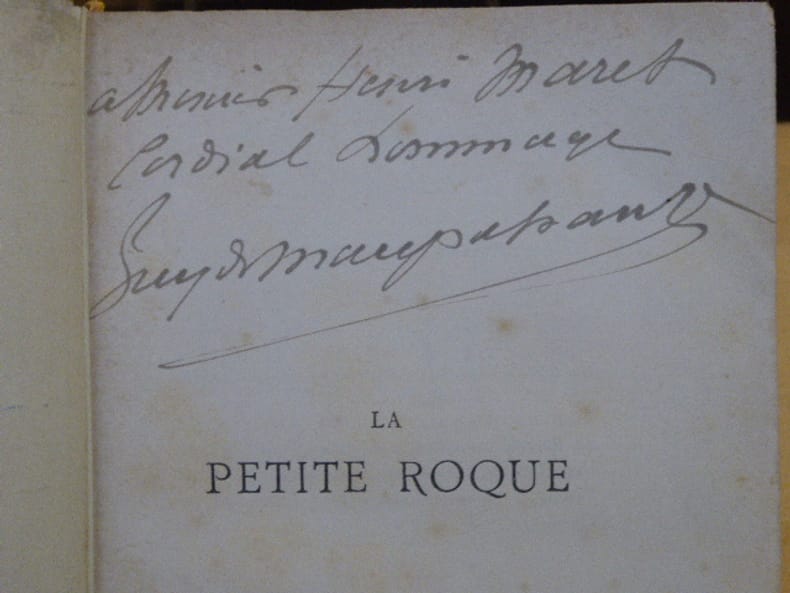 a Monsieur Henri Maret
Cordial hommage
Guy de Maupassant
LA
PETITE ROQUE